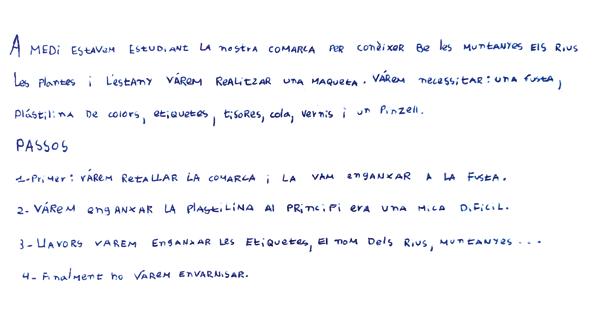 A MEDI ESTAVEM ESTUDIANT LA nostra COMARCA PER conèixer Be les MUNTANYES ELS RIUS
Les Plantes i L'ESTANY VÁREM REALITZAR UNA MAQUETA. VÁREM necessitar: una fusta,
Plástilina De colors, etiquetes, tisores, cola, vernis i un Pinzell.
PASSOS
1-Primer: VÁREM RETALLAR LA COMARCA i LA VAM enganxar A LA FUSTA.
2- VÁREM enganxar LA PLASTILINA Al PRincipi era una mica DiFiCiL.
3- LLAVORS VAREM Enganxar Les Etiquetes, El nom Dels Rius, Muntanyes...
4- Finalment ho VAREM ENVARNISAR.